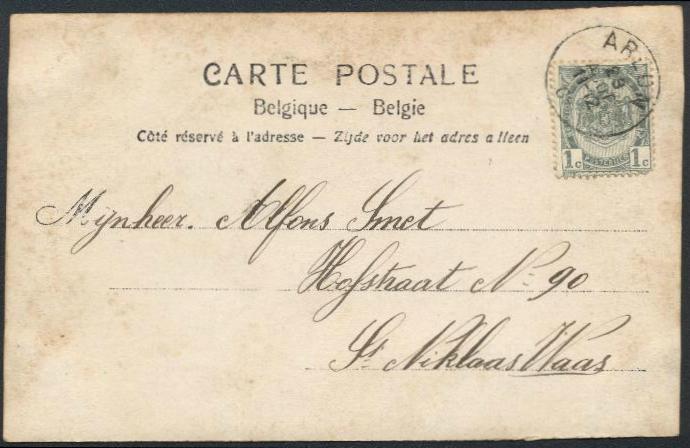 CARTE POSTALE
Belgique — Belgie
Côté réservé à l'adresse — Zijde voor het adres alleen
1c 1c
Mynheer. Alfons Smet
Hofstraat No 90
St. Niklaas Waas